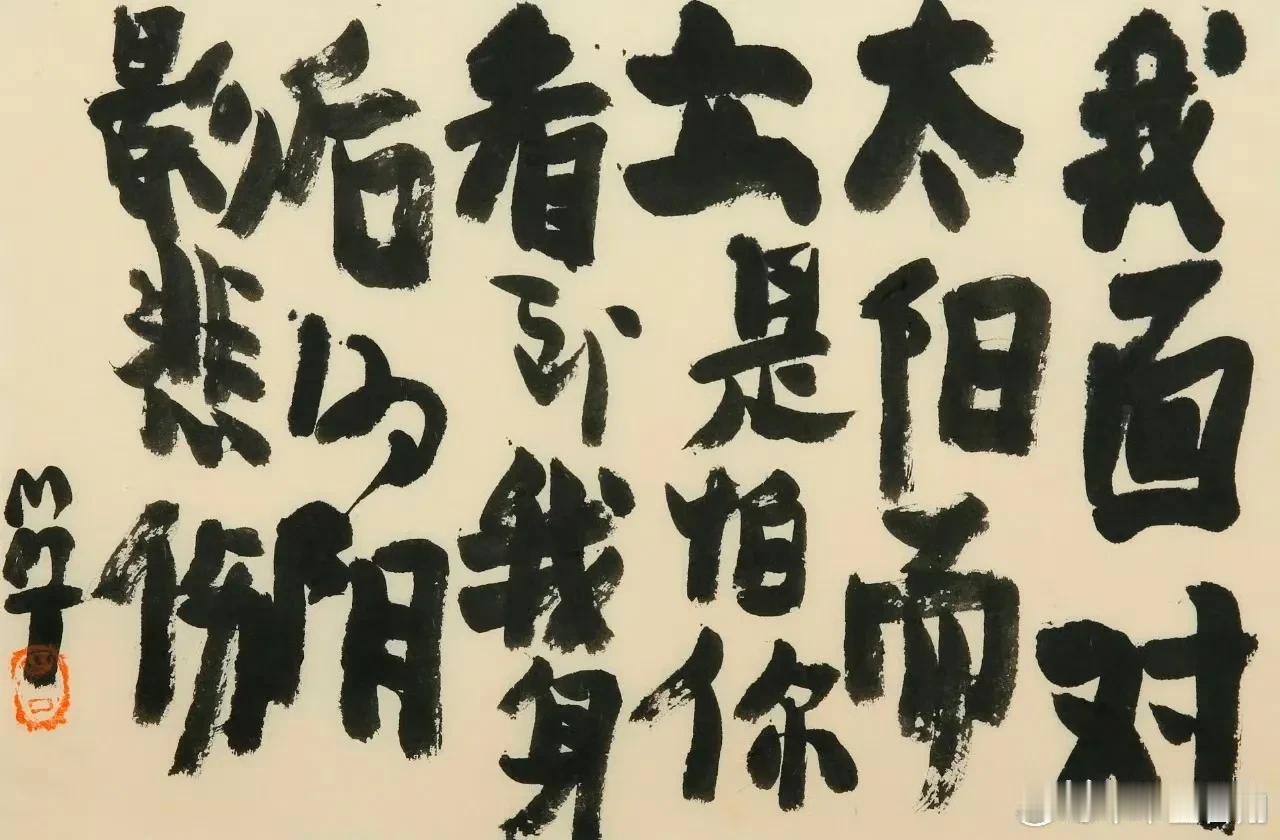 我面对
太阳而
立是怕你
看到我身
后的阴
影悲伤